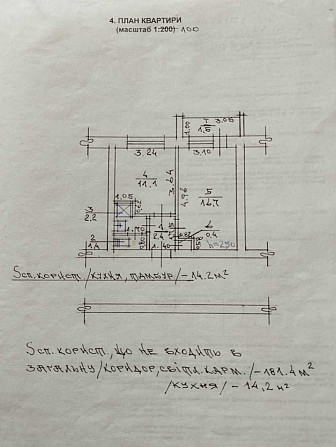 4. ПЛАН КВАРТИРИ
(масштаб 1:200) 100
Т 3.05
1,5
1.00
3.24
3.10
4
11,1
3.64
5
16.7
4.96
1,05
3
2,2
2
1,4
1
2,4
6
0,4
h=250
Sсп.корист /КУХНЯ, ТАМБУР/ - 14.2 м²
Sсп. корист, що не входить в
загальну /коридор, світл. карм./ - 181.4 м²
/кухня/ - 14,2 м²